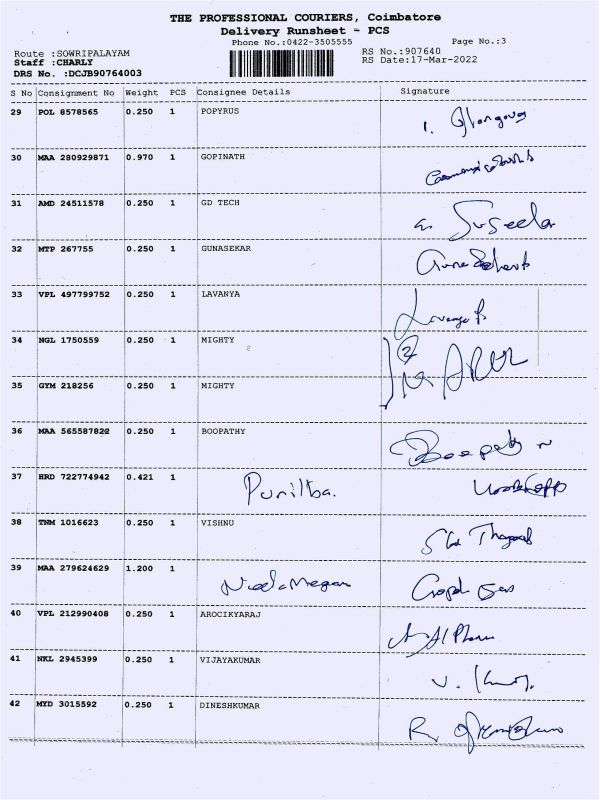 THE PROFESSIONAL COURIERS, Coimbatore
Delivery Runsheet - PCS
Phone No.:0422-3505555 Page No.:3
Route :SOWRIPALAYAM RS No.:907640
Staff :CHARLY RS Date:17-Mar-2022
DRS No. :DCJB90764003
S No Consignment No Weight PCS Consignee Details Signature
29 POL 8578565 0.250 1 POPYRUS
30 MAA 280929871 0.970 1 GOPINATH
31 AMD 24511578 0.250 1 GD TECH Suseela
32 MTP 267755 0.250 1 GUNASEKAR
33 VPL 497799752 0.250 1 LAVANYA
34 NGL 1750559 0.250 1 MIGHTY 2
35 GYM 218256 0.250 1 MIGHTY
36 MAA 565587822 0.250 1 BOOPATHY
37 HRD 722774942 0.421 1
38 TNM 1016623 0.250 1 VISHNU
39 MAA 279624629 1.200 1
40 VPL 212990408 0.250 1 AROCIKYARAJ
41 NKL 2945399 0.250 1 VIJAYAKUMAR
42 MYD 3015592 0.250 1 DINESHKUMAR